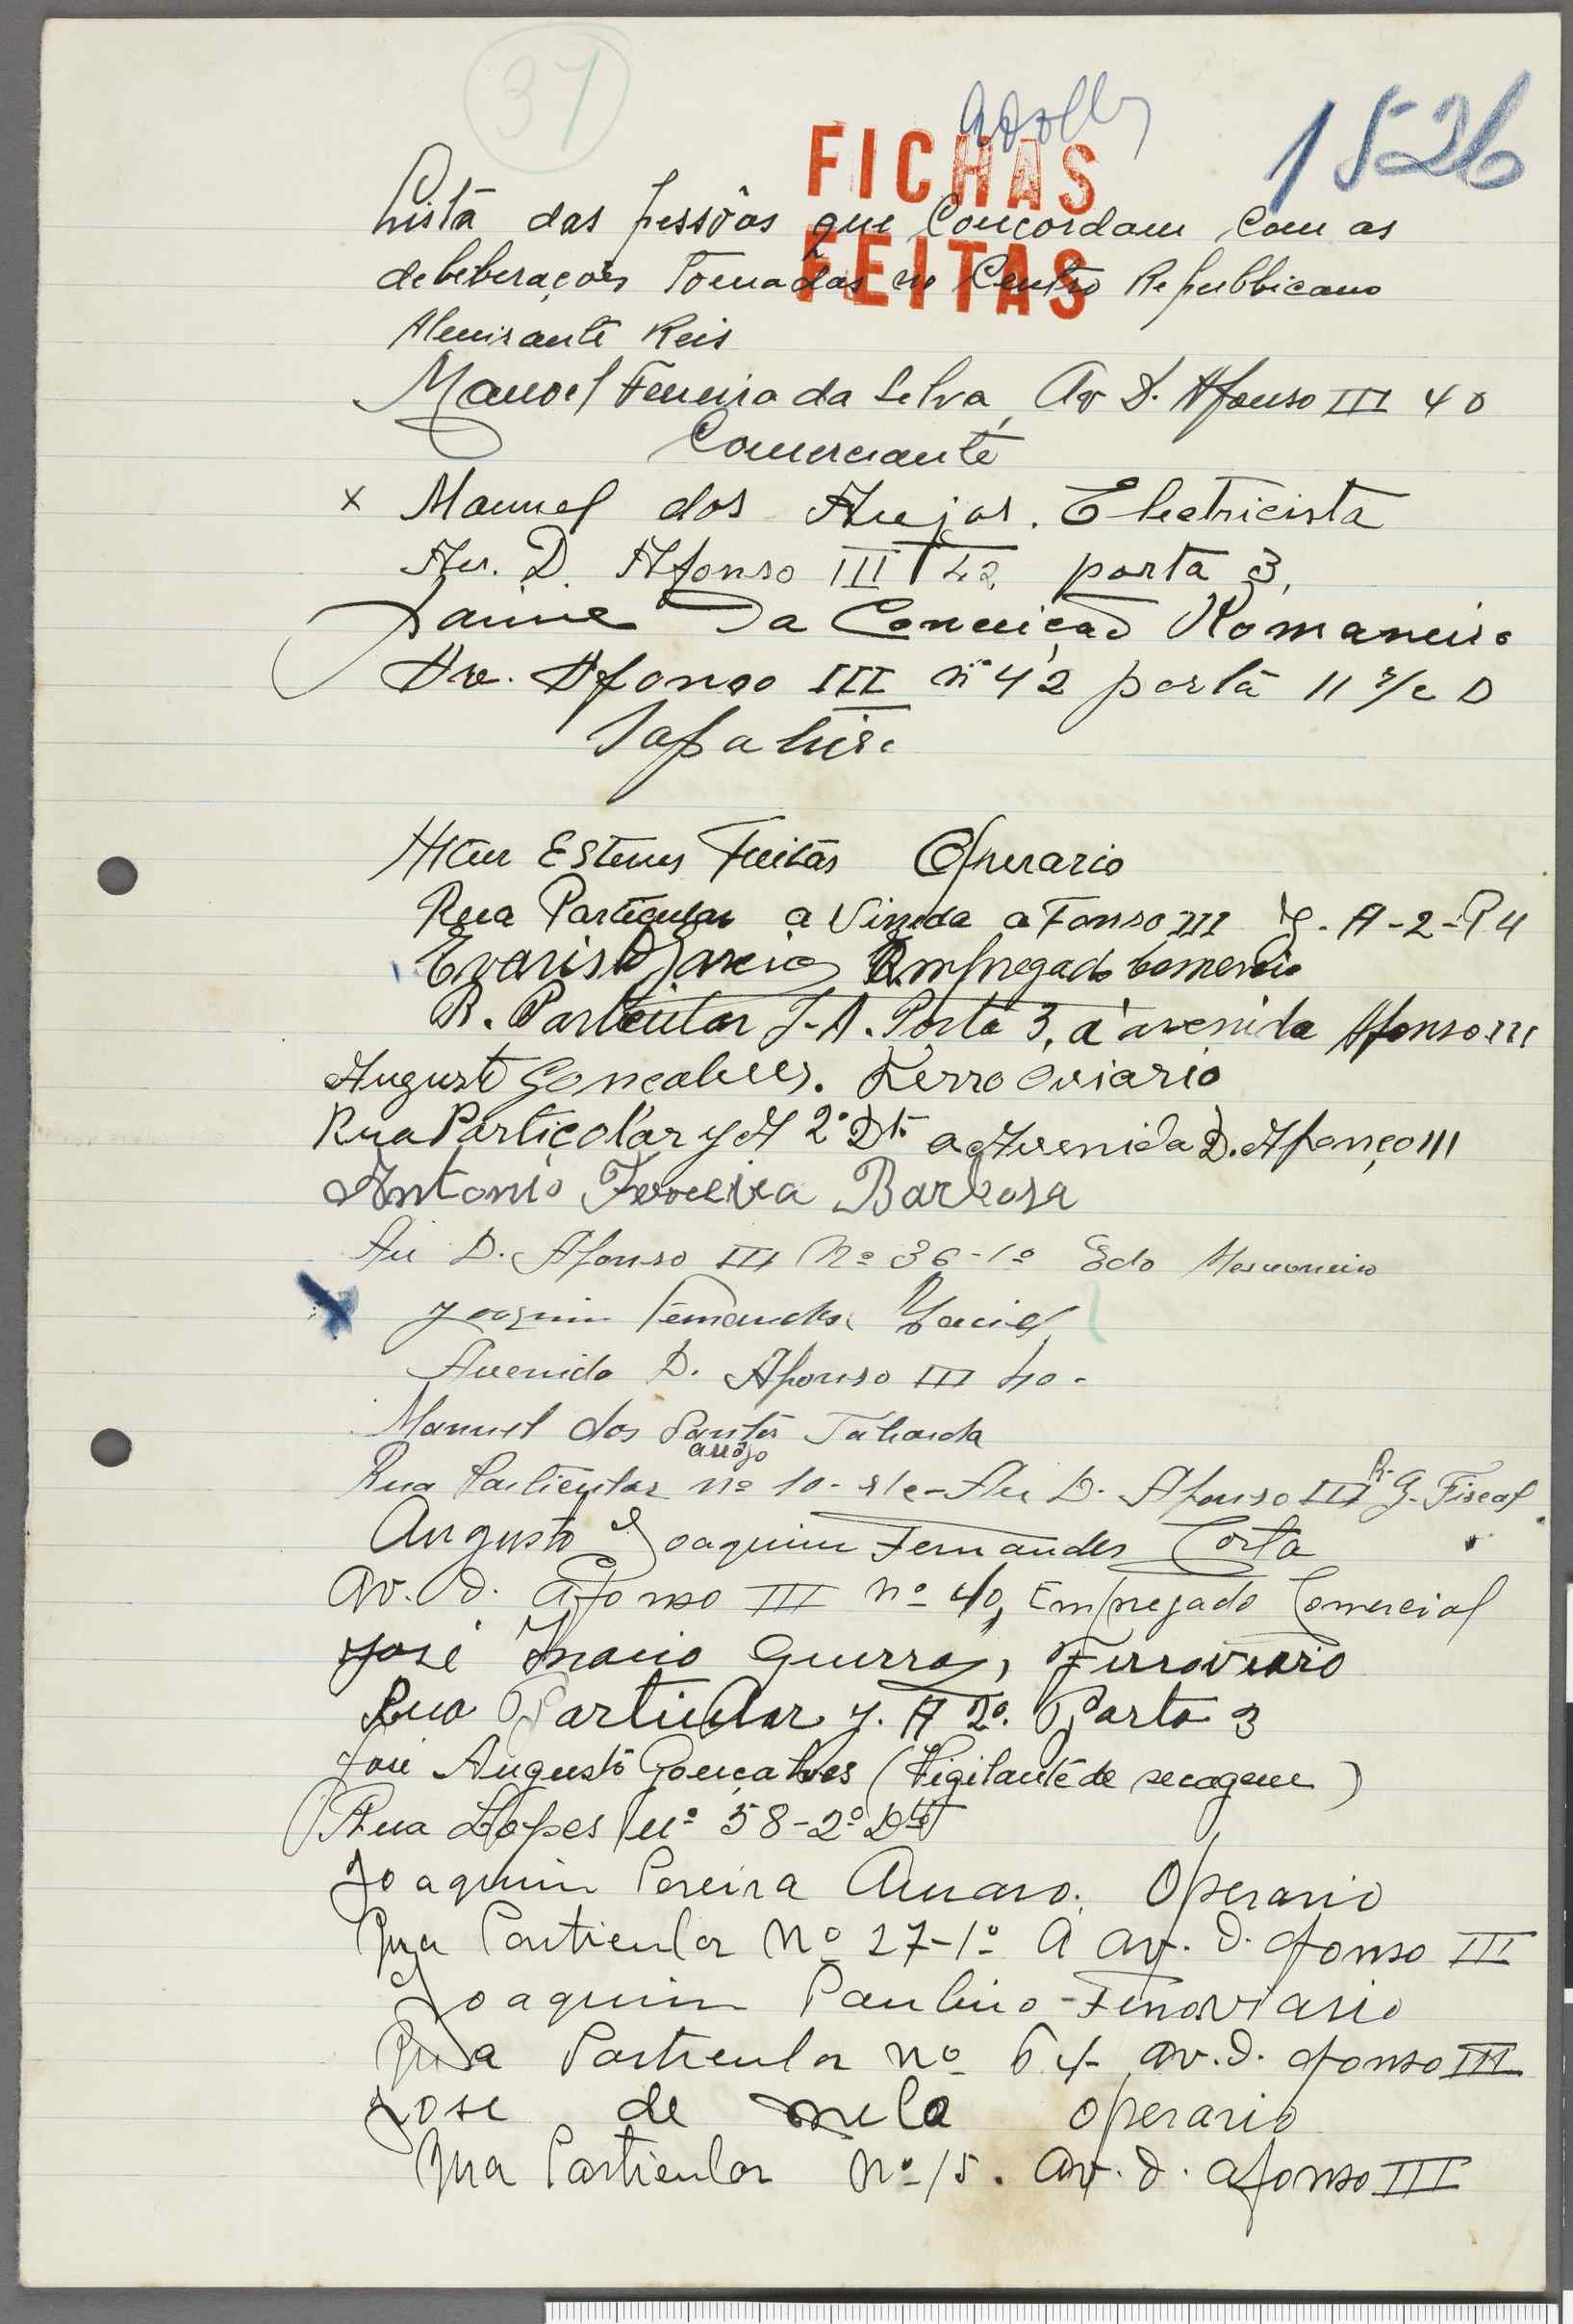 37
1526
FICHAS
FEITAS
Lista das pessôas que Concordam com as
deleberações Tomadas no Centro Republicano
Almirante Reis
Manoel Ferreira da Silva, Av D. Afonso III 40
Comerciante
x Manuel dos Anjos. Eletricista
Av. D. Afonso III 42 porta 3,
Jaime da Conceição Romaneiro
Av. Afonso III nº 42 porta 11 r/c D
Sapateiro
Esteves Freitas Operario
Rua Particular a Vinida a Fonso III J. A-2-P4
Evaristo Garcia Empregado Comercio
R. Particular J-A. Porta 3, á avenida Afonso III
Augusto Goncalves. Ferro Oviario
Rua Particolar J A 2º Dtº a Avenida D. Afonço III
Antonio Ferreira Barbosa
Av D. Afonso III Nº 36-1º Edo Marceneiro
Joaquim Fernandes Maciel
Avenida D. Afonso III 40-
Manuel dos Santos Taborda
Rua Particular nº 10- r/c- Av D. Afonso III R. G. Fiscal
Augusto Joaquim Fernandes Costa
Av. D. Afonso III nº 40, Empregado Comercial
José Inacio Guerra, Ferroviario
Rua Particular J. A 2º. Porta 3
José Augusto Gonçalves (Vigilante de secagem)
Rua Lopes nº 58-2º Dtº
Joaquim Pereira Amaro. Operario
Rua Particular Nº 27-1º A av. D. Afonso III
Joaquim Paulino - Ferroviario
Rua Particular nº 64- av. D. Afonso III
Jose de melo operario
Rua Particular Nº 15. Av. D. Afonso III